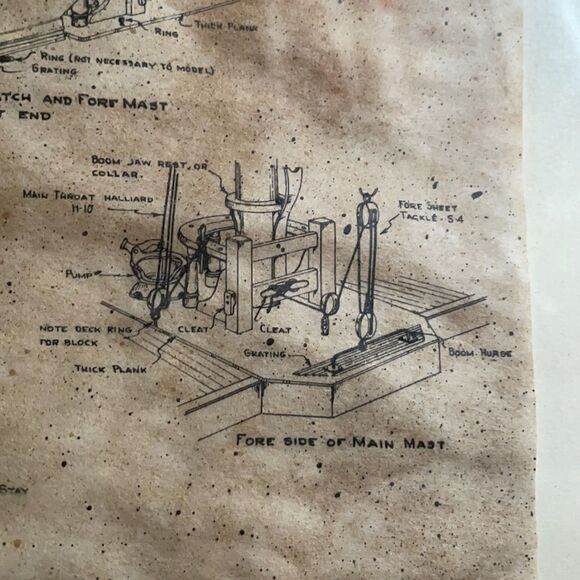 THICK PLANK
RING
RING (NOT NECESSARY TO MODEL)
GRATING
ATCH AND FORE MAST
T END
BOOM JAW REST, OR
COLLAR.
MAIN THROAT HALLIARD
H-10
FORE SHEET
TACKLE S-4
PUMP
NOTE DECK RING
FOR BLOCK
CLEAT
CLEAT
GRATING
BOOM HORSE
THICK PLANK
FORE SIDE OF MAIN MAST
STAY